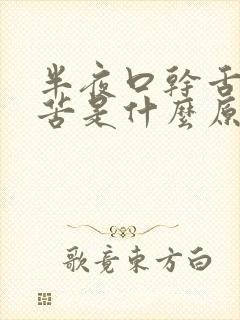 半夜口幹舌
苦是什麼原
歌竟東方白